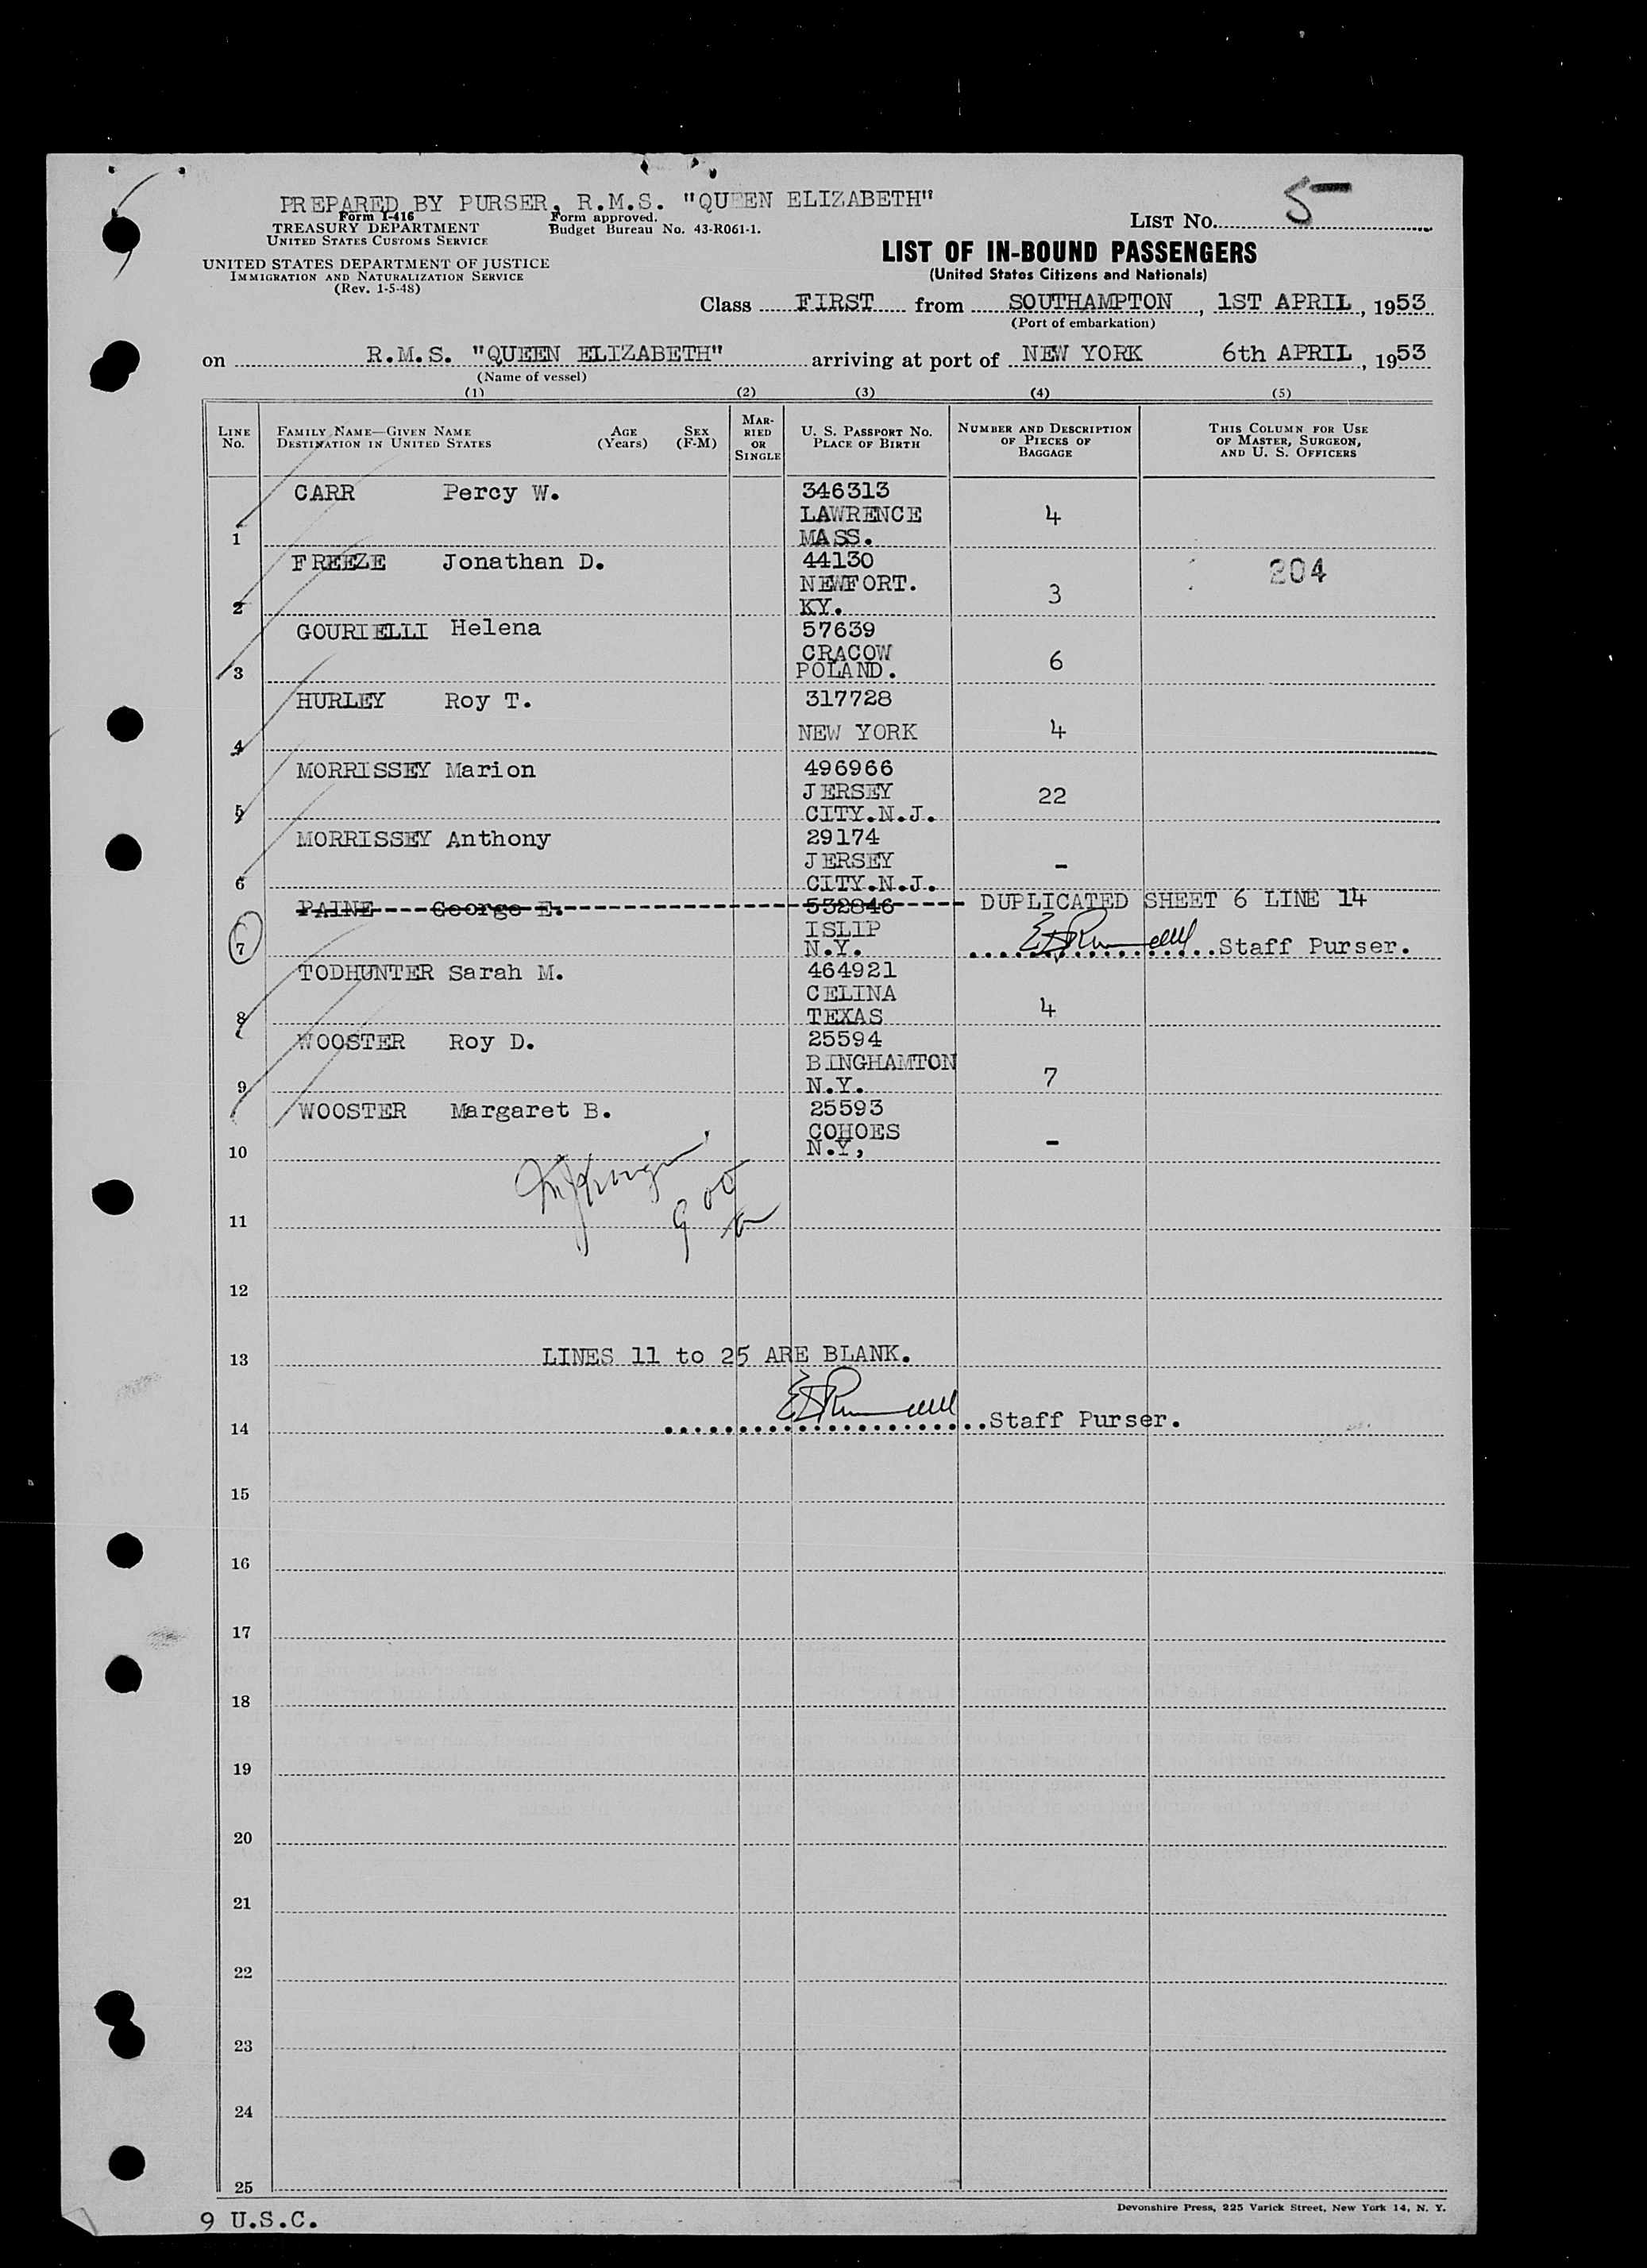 PREPARED BY PURSER, R.M.S. "QUEEN ELIZABETH"
Form I-416
TREASURY DEPARTMENT
UNITED STATES CUSTOMS SERVICE
Form approved.
Budget Bureau No. 43-R061-1.
LIST NO. 5
UNITED STATES DEPARTMENT OF JUSTICE
IMMIGRATION AND NATURALIZATION SERVICE
(Rev. 1-5-48)
LIST OF IN-BOUND PASSENGERS
(United States Citizens and Nationals)
Class FIRST from SOUTHAMPTON, 1ST APRIL, 1953
(Port of embarkation)
on R.M.S. "QUEEN ELIZABETH" arriving at port of NEW YORK 6th APRIL, 1953
(Name of vessel)
(1) (2) (3) (4) (5)
LINE No.
FAMILY NAME—GIVEN NAME
DESTINATION IN UNITED STATES
AGE (Years)
SEX (F-M)
MARRIED OR SINGLE
U. S. PASSPORT NO.
PLACE OF BIRTH
NUMBER AND DESCRIPTION OF PIECES OF BAGGAGE
THIS COLUMN FOR USE OF MASTER, SURGEON, AND U. S. OFFICERS
CARR Percy W. 346313
LAWRENCE 4
1 MASS.
FREEZE Jonathan D. 44130 204
NEWFORT. 3
2 KY.
GOURIELLI Helena 57639
CRACOW 6
3 POLAND.
HURLEY Roy T. 317728
4 NEW YORK 4
MORRISSEY Marion 496966
JERSEY 22
5 CITY.N.J.
MORRISSEY Anthony 29174
JERSEY -
6 CITY.N.J.
PAINE George E. 532846 DUPLICATED SHEET 6 LINE 14
ISLIP
7 N.Y. Staff Purser.
TODHUNTER Sarah M. 464921
CELINA 4
8 TEXAS
WOOSTER Roy D. 25594
BINGHAMTON 7
9 N.Y.
WOOSTER Margaret B. 25593
COHOES -
10 N.Y,
9 00
11
12
13 LINES 11 to 25 ARE BLANK.
14 Staff Purser.
15
16
17
18
19
20
21
22
23
24
25
Devonshire Press, 225 Varick Street, New York 14, N. Y.
9 U.S.C.